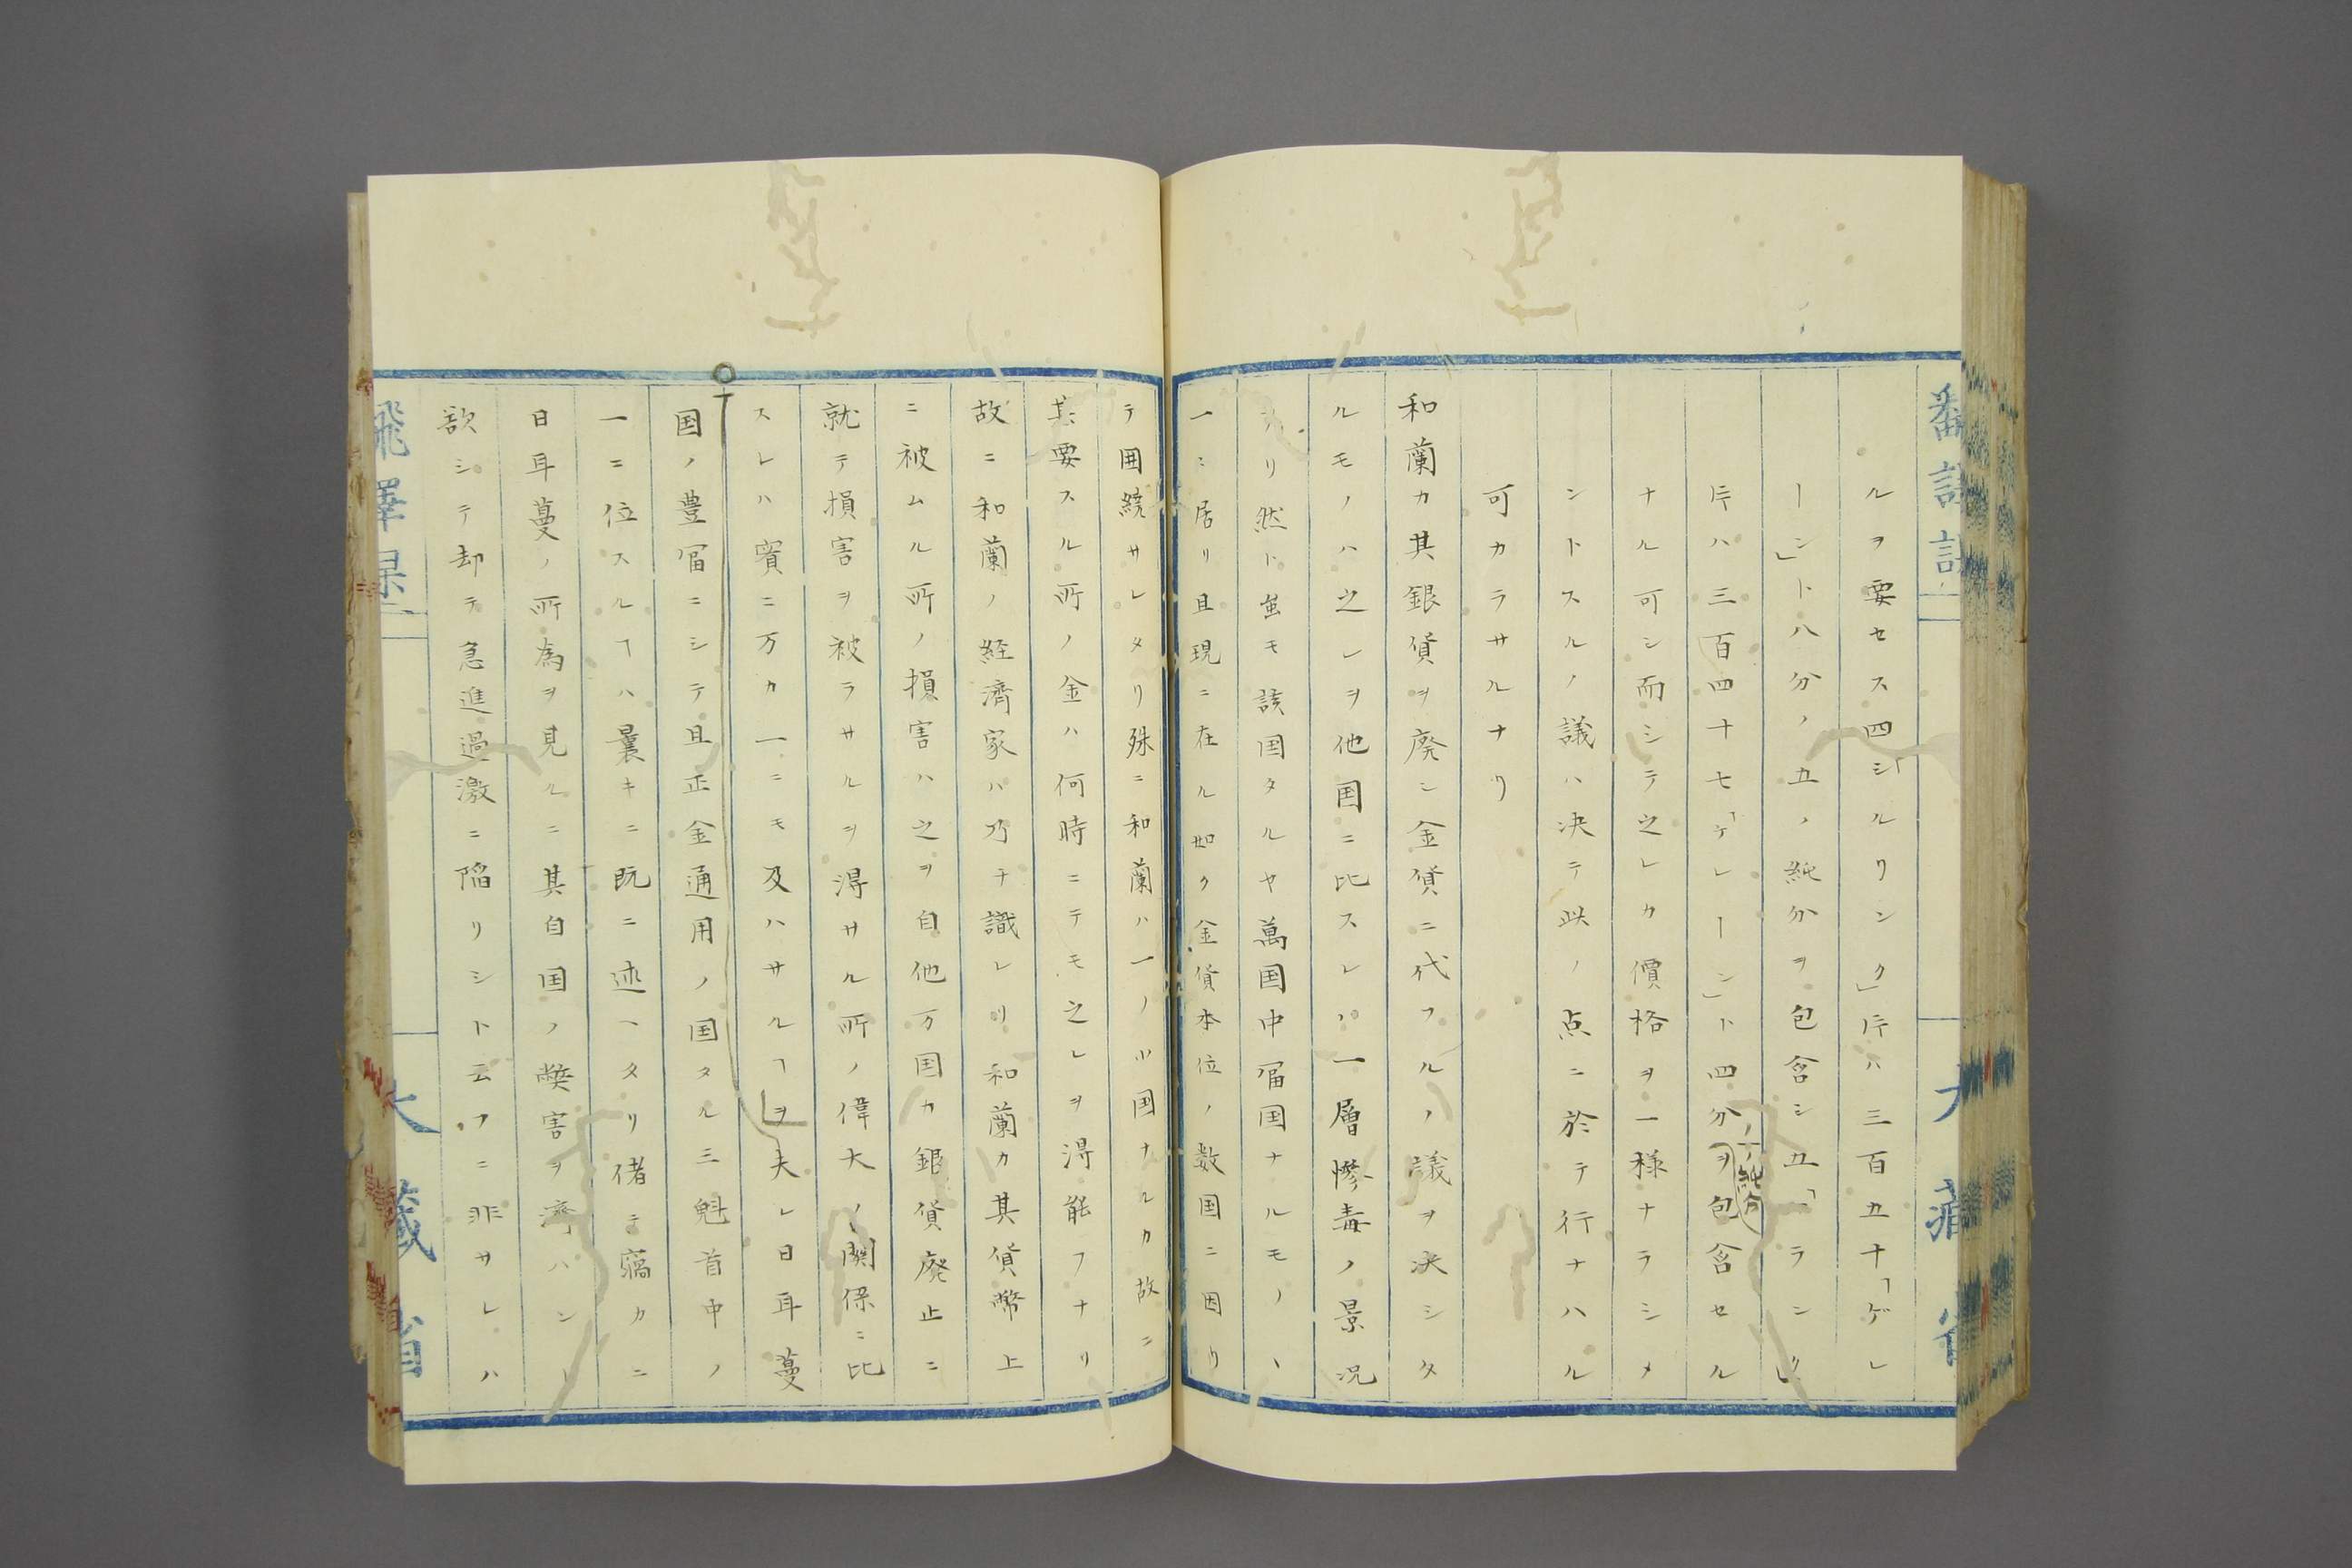 ルヲ要セス四「シルリンク」片ハ三百五十「ゲレ
ーン」ト八分ノ五ノ純分ヲ包含シ五「フランク」
片ハ三百四十七「ゲレーン」ト四分ノ一ノ純分ヲ包含セル
ナル可シ而シテ之レカ價格ヲ一様ナラシメ
ントスルノ議ハ决テ此ノ点ニ於テ行ナハル
可カラサルナリ
和蘭カ其銀貨ヲ廃シ金貨ニ代フルノ議ヲ决シタ
ルモノハ之レヲ他国ニ比スレハ一層惨毒ノ景况
ナリ然ト虽モ該国タルヤ萬国中冨国ナルモノヽ
一ニ居リ且現ニ在ル如ク金貨本位ノ数国ニ因リ
テ囲繞サレタリ殊ニ和蘭ハ一ノ小国ナルカ故ニ
其要スル所ノ金ハ何時ニテモ之レヲ得能フナリ
故ニ和蘭ノ経濟家ハ乃チ識レリ和蘭カ其貨幣上
ニ被ムル所ノ損害ハ之ヲ自他万国カ銀貨廃止ニ
就テ損害ヲ被ラサルヲ得サル所ノ偉大ノ関係ニ比
スレハ實ニ万カ一ニモ及ハサルヿヲ夫レ日耳蔓
国ノ豊冨ニシテ且正金通用ノ国タル三魁首中ノ
一ニ位スルヿハ曩キニ既ニ述ヘタリ偖テ竊カニ
日耳蔓ノ所為ヲ見ルニ其自国ノ弊害ヲ濟ハント
欲シテ却テ急進過激ニ陥リシト云フニ非サレハ
大藏省